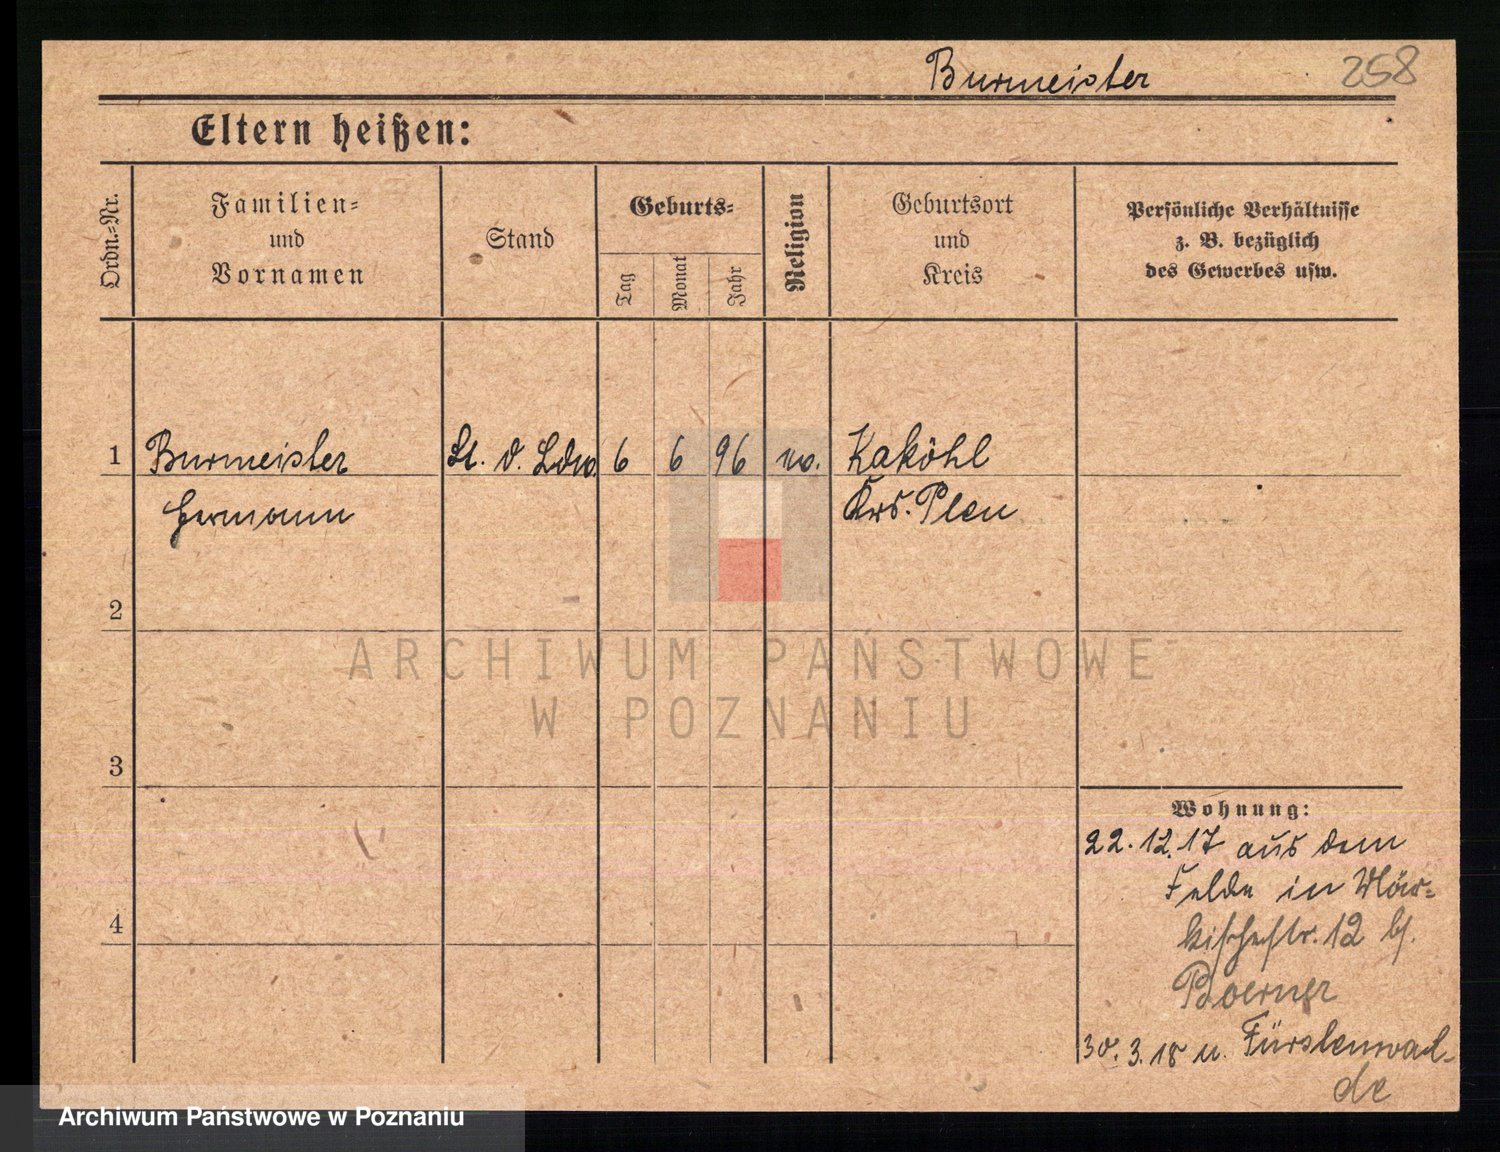 Burmeister 258
Eltern heißen:
Ordn.=Nr.
Familien=
und
Vornamen
Stand
Geburts=
Tag
Monat
Jahr
Religion
Geburtsort
und
Kreis
Persönliche Verhältnisse
z. B. bezüglich
des Gewerbes usw.
1 Burmeister Lt. d. Ldw. 6 6 96 Kaköhl
Hermann Krs. Plön
2
ARCHIWUM PAŃSTWOWE
W POZNANIU
3
Wohnung:
22.12.17 aus dem
Felde in Mär=
4
kischestr. 12 b/.
Boerner
30.3.18 n. Fürstenwal-
de
Archiwum Państwowe w Poznaniu